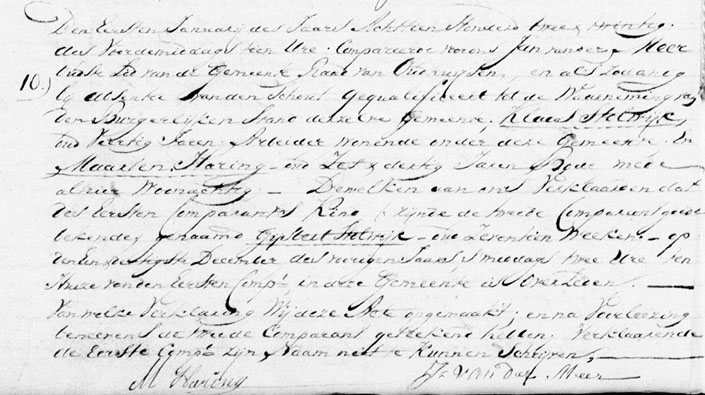 Den Eersten Januarij des Jaars Achttien Honderd twee & twintig.
des Voordemiddags tien Ure. Compareerde voor ons Jan van der Meer
oudste Lid van de Gemeente Raad van , en als Zodanig
10.) bij absentie van den Schout Gequalificeert tot de Waarneming van
den Burgerlijken Stand dezer Gemeente, Klaas Stelwijk,
oud Veertig Jaren Arbeider wonende onder deze Gemeente. En
Maarten Haring – oud Zet & dertig Jaren Bode mede
alhier Woonachtig – Dewelken aan ons Verklaarden dat
des Eersten Comparants Kind / zijnde de tweede Comparant goede
bekende / genaamd Gijsbert Stelwijk – oud Zeventien Weeken – op
den Een & dertigste December des vorigen Jaars s'middags twee Ure ten
Huize van den Eersten Compt in deze Gemeente is Overleden. —
Van welke Verklaring Wij deze Acte opgemaakt; en na Voorlezing
benevens de tweede Comparant getekend hebben. Verklaarende
de Eerste Compt zijn Naam niet te Kunnen Schrijven. —
M Haring Jn van der Meer